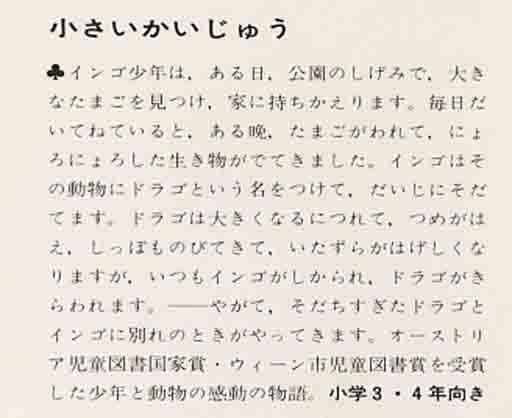 小さいかいじゅう
♣インゴ少年は，ある日，公園のしげみで，大き
なたまごを見つけ，家に持ちかえります。毎日だ
いてねていると，ある晩，たまごがわれて，にょ
ろにょろした生き物がでてきました。インゴはそ
の動物にドラゴという名をつけて，だいじにそだ
てます。ドラゴは大きくなるにつれて，つめがは
え，しっぽものびてきて，いたずらがはげしくな
りますが，いつもインゴがしかられ，ドラゴがき
らわれます。――やがて，そだちすぎたドラゴと
インゴに別れのときがやってきます。オーストリ
ア児童図書国家賞・ウィーン市児童図書賞を受賞
した少年と動物の感動の物語。小学3・4年向き